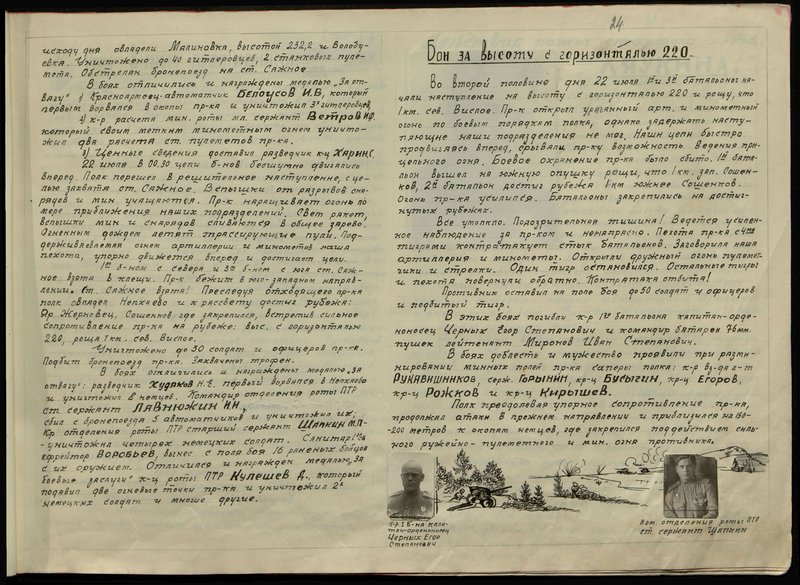 исходу дня овладели Малиновка, высотой 232,2 и Волобу-
овка. Уничтожено до 40 гитлеровцев, 2 станковых пуле-
мета. Обстрелян бронепоезд на ст. Сажное
В боях отличились и награждены медалью „За от-
вагу" 1) Красноармеец-автоматчик БЕЛОУСОВ И.В, который
первым ворвался в окопы пр-ка и уничтожил 3х гитлеровцев,
2) к-р расчета мин. роты мл. сержант ВЕТРОВ
который своим метким минометным огнем уничто-
жил два расчета ст. пулеметов пр-ка.
3) Ценные сведения доставил разведчик кр-ц ХАРИН
22 июля в 00.30 цепи б-нов бесшумно двигались
вперед. Полк перешел в решительное наступление, с це-
лью захвата ст. Сажное. Вспышки от разрывов сна-
рядов и мин учащаются. Пр-к наращивает огонь по
мере приближения наших подразделений. Свет ракет,
вспышки мин и снарядов сливаются в общее зарево.
Огненным дождем летят трассирующие пули. Под-
держиваемая огнем артиллерии и минометов наша
пехота, упорно движется вперед и достигает цели.
1ый б-ном с севера и 3им б-ном с юга ст. Саж-
ное взята в клещи. Пр-к бежит в юго-западном направ-
лении. Ст. Сажное взята! Преследуя отходящего пр-ка
полк овладел Непхаево и к рассвету достиг рубежа:
Яр. Жерновец, Сошенков где закрепился, встретив сильное
сопротивление пр-ка на рубеже: выс. с горизонталью
220, роща 1 км. сев. Вислое.
Уничтожено до 30 солдат и офицеров пр-ка.
Подбит бронепоезд пр-ка. Захвачены трофеи.
В боях отличились и награждены медалью „за
отвагу": разведчик ХУДЯКОВ Н.Е. первый ворвался в Непхаево
и уничтожил 8 немцев. Командир отделения роты ПТР
ст сержант ЛАВНЮЖИН И.Н,
сбил с бронепоезда 5 автоматчиков и уничтожил их;
Кр отделения роты ПТР старший сержант ШАПКИН М.П-
-уничтожил четырех немецких солдат. Санитар 1го б-на
ефрейтор ВОРОБЬЕВ, вынес с поля боя 16 раненых бойцов
с их оружием. Отличился и награжден медалью „За
боевые заслуги" к-ц роты ПТР КУЛЕШЕВ Д., который
подавил две огневые точки пр-ка и уничтожил 2х
немецких солдат и многие другие.
24
БОИ ЗА ВЫСОТУ С ГОРИЗОНТАЛЬЮ 220.
Во второй половине дня 22 июля 1ый и 3ий батальоны на-
чали наступление на высоту с горизонталью 220 и рощу, что
1 км. сев. Вислое. Пр-к открыл ураганный арт. и минометный
огонь по боевым порядкам полка, однако задержать насту-
пающие наши подразделения не мог. Наши цепи быстро
продвигаясь вперед, срывали пр-ку возможность ведения при-
цельного огня. Боевое охранение пр-ка было сбито. 1ый бата-
льон вышел на южную опушку рощи, что 1 км. зап. Сошен-
ков, 2ой батальон достиг рубежа 1 км южнее Сошенков.
Огонь пр-ка усилился. Батальоны закрепились на достиг-
нутых рубежах.
Все умолкло. Подозрительная тишина! Ведется усилен-
ное наблюдение за пр-ком и ненапрасно. Пехота пр-ка с 4мя
тиграми контратакует стык батальонов. Заговорила наша
артиллерия и минометы. Открыли дружный огонь пулемет-
чики и стрелки. Один тигр остановился. Остальные тигры
и пехота повернули обратно. Контратака отбита!
Противник оставил на поле боя до 50 солдат и офицеров
и подбитый тигр.
В этих боях погибли к-р 1го батальона капитан-орде-
ноносец ЧЕРНЫХ ЕГОР СТЕПАНОВИЧ и командир батареи 76 мм.
пушек лейтенант МИРОНОВ ИВАН СТЕПАНОВИЧ.
В боях доблесть и мужество проявили при разми-
нировании минных полей пр-ка саперы полка: к-р вз-да л-т
РУКАВИШНИКОВ, серж. ГОРЫНИН, кр-ц БУСЫГИН, кр-ц ЕГОРОВ,
кр-ц РОЖКОВ и кр-ц КИРЫШЕВ.
Полк преодолевая упорное сопротивление пр-ка,
продолжал атаки в прежнем направлении и приблизился на 150-
-200 метров к окопам немцев, где закрепился под действием силь-
ного ружейно-пулеметного и мин. огня противника.
К-р 1 б-на капи-
тан-орденоносец
Черных Егор
Степанович
Ком. отделения роты ПТР
ст. сержант ШАПКИН